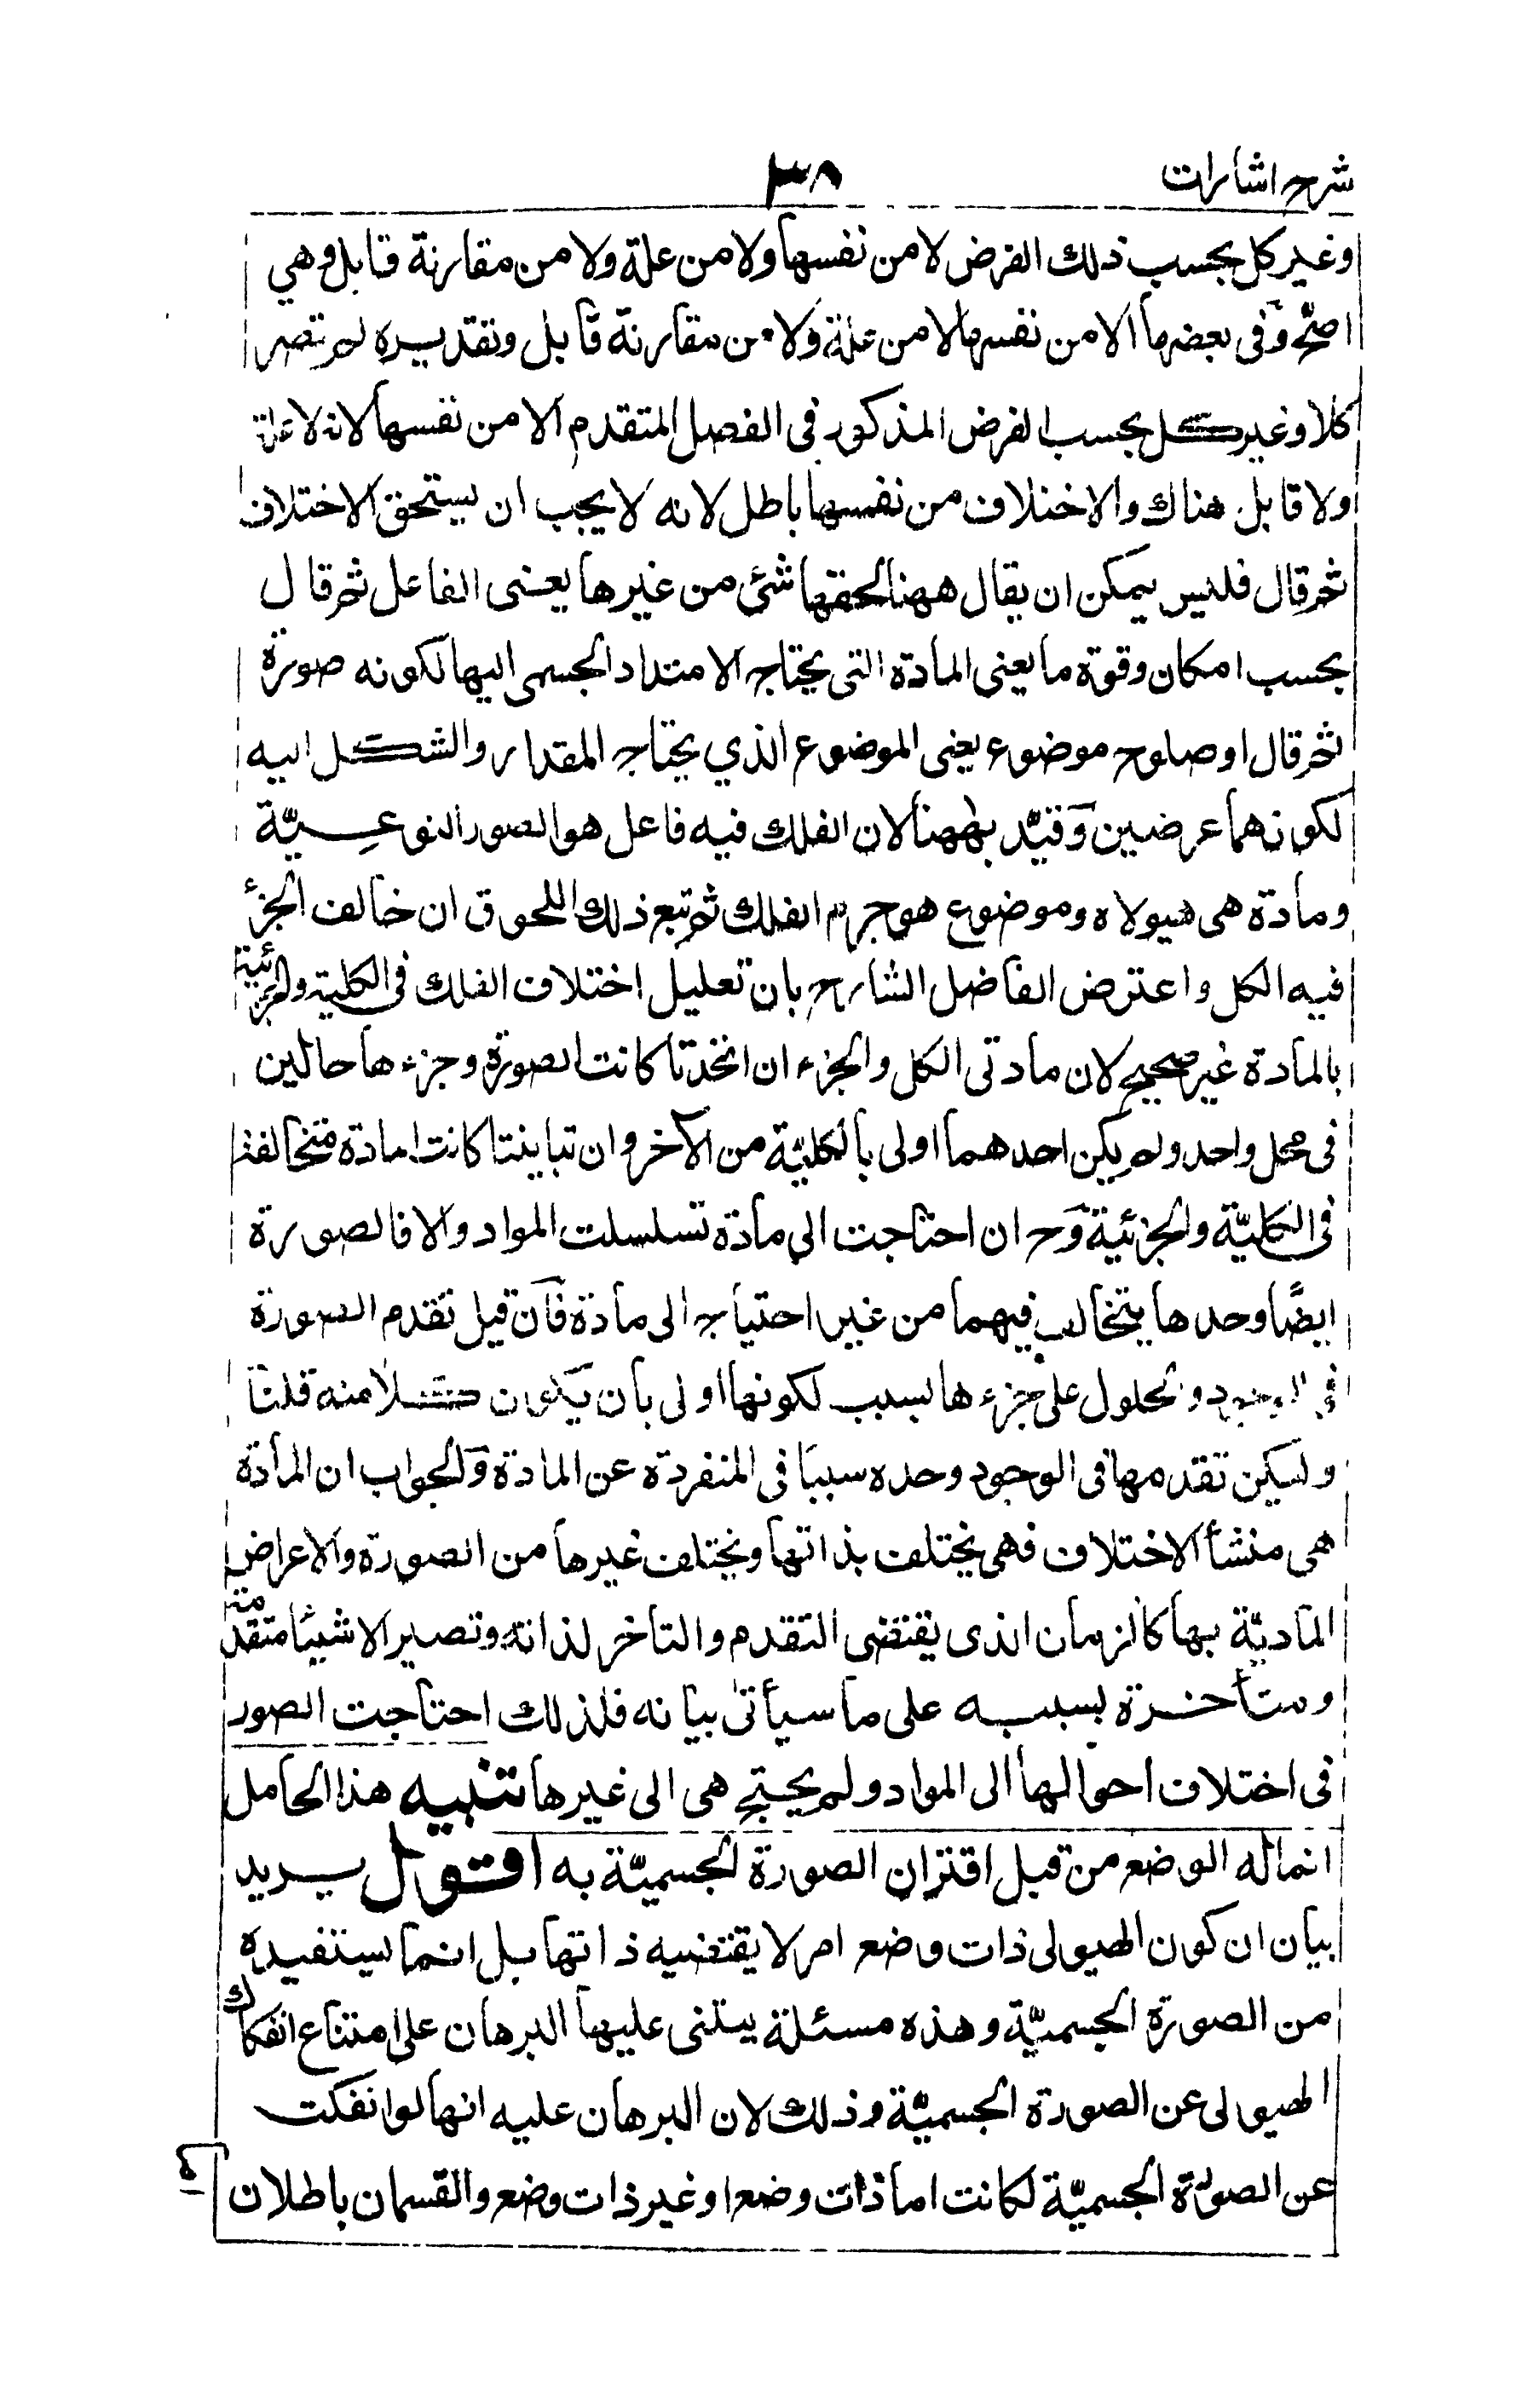 شرح اشارات
٣٨
وغير كل بحسب ذلك الفرض لا من نفسها ولا من علة ولا من مقارنة قابل وهي
اصح وفى بعضها الا من نفسها لا من علة ولا من مقارنة قابل وتقديره لم تصر
كلا وغير كل بحسب الفرض المذكور فى الفصل المتقدم الا من نفسها لانه لا علة
ولا قابل هناك والاختلاف من نفسها باطل لانه لا يجب ان يستحق الاختلاف
ثم قال فليس يمكن ان يقال ههنا لحقها شئ من غيرها يعنى الفاعل ثم قال
بحسب امكان وقوة ما يعنى المادة التى يحتاج الامتداد الجسمى اليها لكونه صورة
ثم قال او صلوح موضوع يعنى الموضوع الذي يحتاج المقدار والشكل اليه
لكونهما عرضين وقيد بههنا لان الفلك فيه فاعل هو الصور النوعية
ومادة هى هيولاه وموضوع هو جرم الفلك ثم تبع ذلك اللحوق ان خالف الجزء
فيه الكل واعترض الفاضل الشارح بان تعليل اختلاف الفلك فى الكلية والجزئية
بالمادة غير صحيح لان مادتى الكل والجزء ان اتحدتا كانت الصورة وجزءها حالين
فى محل واحد ولم يكن احدهما اولى بالكلية من الآخر وان تباينتا كانت المادة متخالفة
فى الكلية والجزئية وح ان احتاجت الى مادة تسلسلت المواد والا فالصورة
ايضًا وحدها يتخالف فيهما من غير احتياج الى مادة فان قيل تقدم الصورة
فى الوجود والحلول على جزءها بسبب لكونها اولى بان يكون كلا منه قلنا
وليكن تقدمها فى الوجود وحده سببا فى المنفردة عن المادة والجواب ان المادة
هى منشأ الاختلاف فهى يختلف بذاتها ويختلف غيرها من الصورة والاعراض
المادية بها كالزمان الذى يقتضى التقدم والتاخر لذاته وتصير الاشياء متقدمة
ومتأخرة بسببه على ما سيأتى بيانه فلذلك احتاجت الصور
فى اختلاف احوالها الى المواد ولم يحتج هى الى غيرها تنبيه هذا الحامل
انما له الوضع من قبل اقتران الصورة الجسمية به اقول يريد
بيان ان كون الهيولى ذات وضع امر لا يقتضيه ذاتها بل انما يستفيده
من الصورة الجسمية وهذه مسئلة يبتنى عليها البرهان على امتناع انفكاك
الهيولى عن الصورة الجسمية وذلك لان البرهان عليه انها لو انفكت
عن الصورة الجسمية لكانت اما ذات وضع او غير ذات وضع والقسمان باطلان